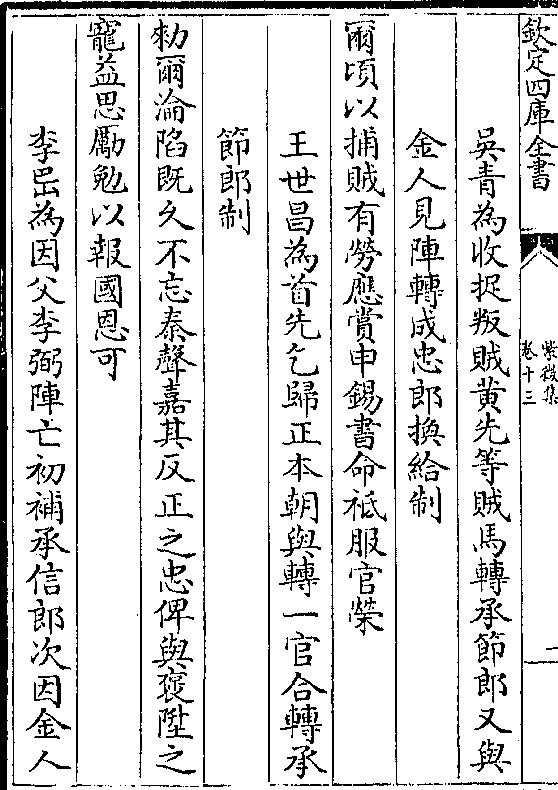 欽定四庫全書
紫微集
卷十三
二
吳青為收捉叛賊黄先等賊馬轉承節郎又與
金人見陣轉成忠郎換給制
爾頃以捕賊有勞應賞申錫書命祗服官榮
王世昌為首先乞歸正本朝與轉一官合轉承
節郎制
勅爾淪陷既久不忘泰聲嘉其反正之忠俾與褒陞之
寵益思勵勉以報國恩可
李岊為因父李弼陣亡初補承信郎次因金人